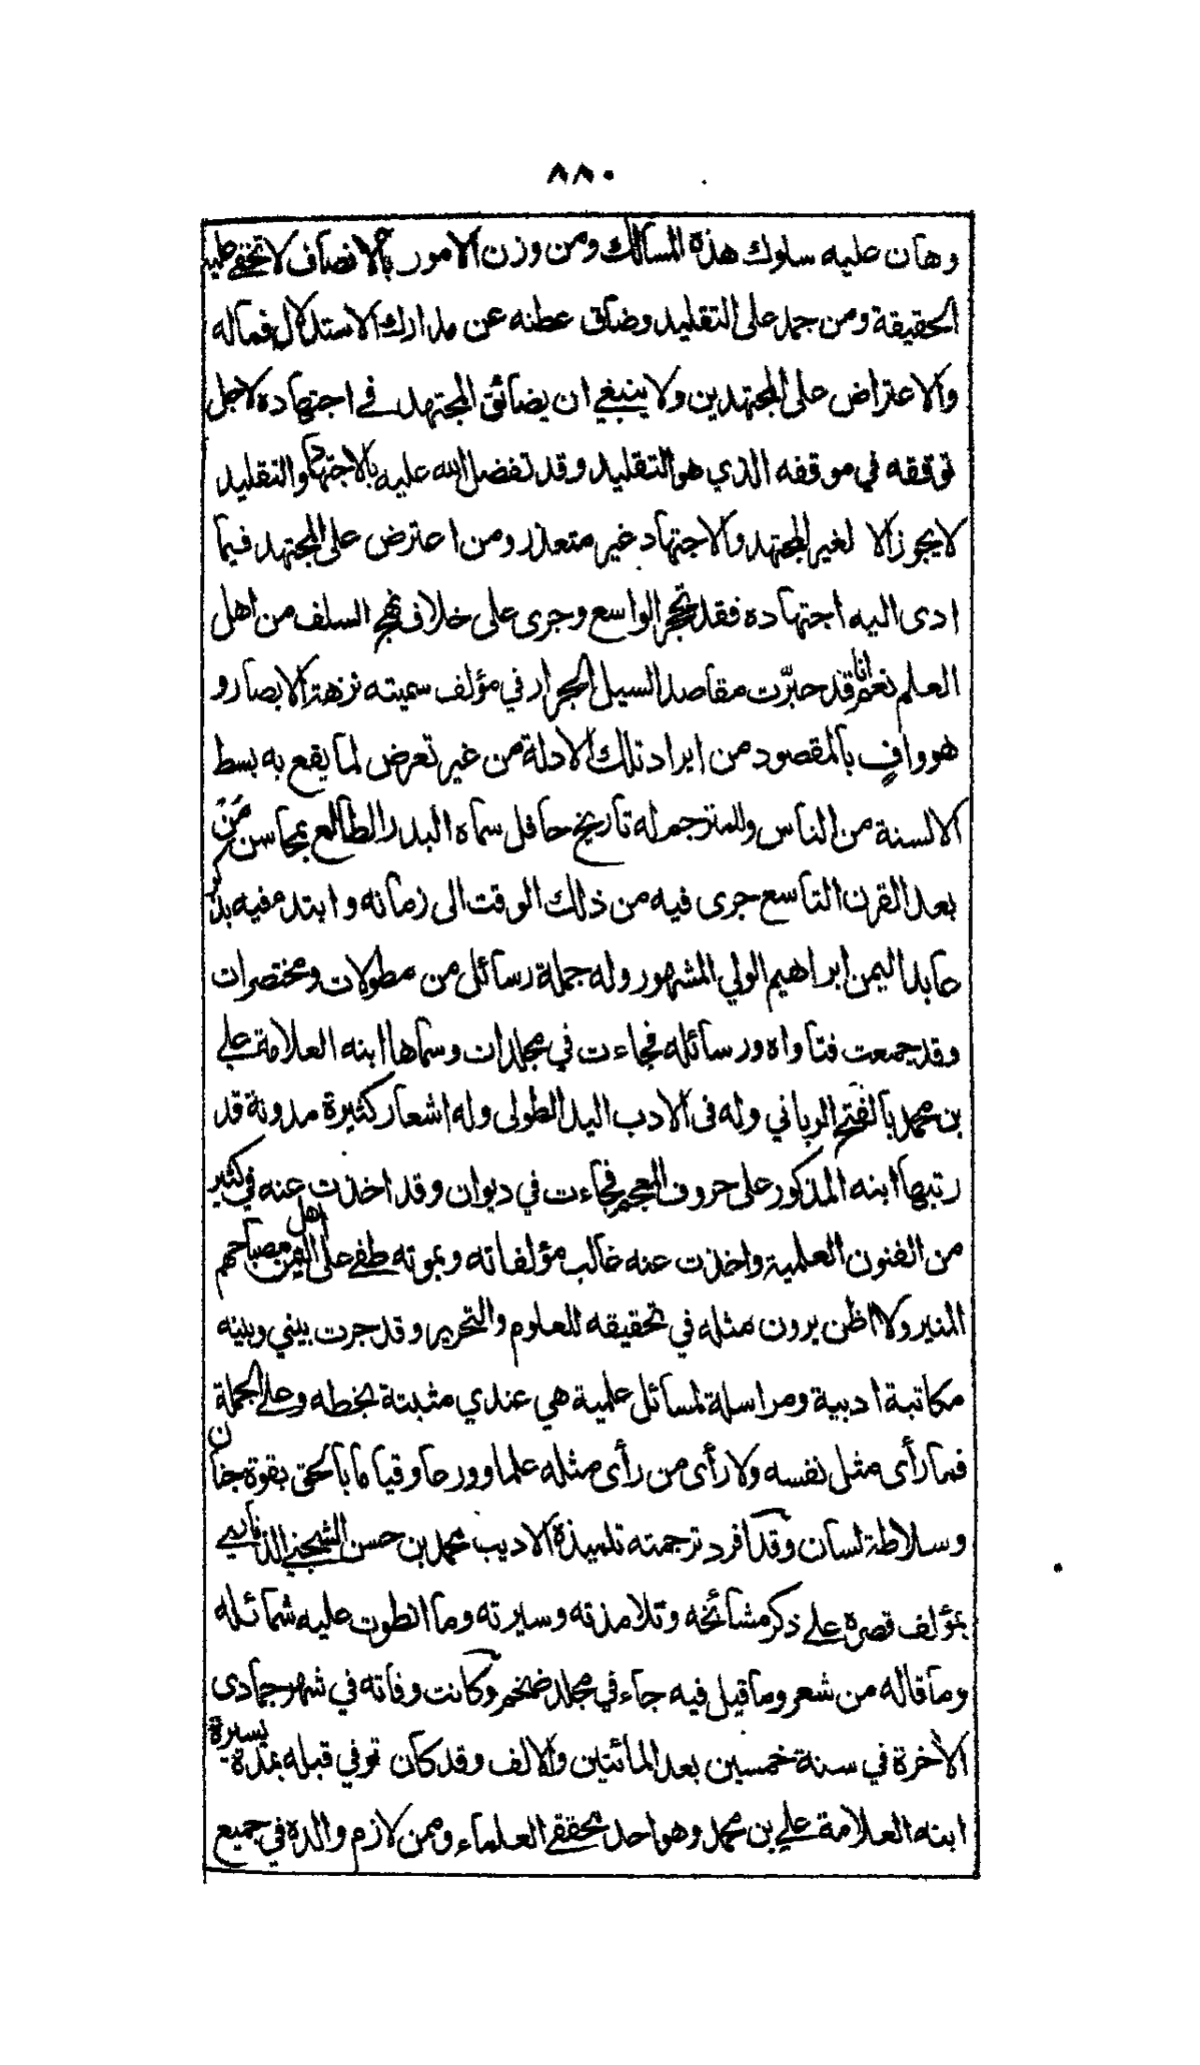 ٨٨٠
وهان عليه سلوك هذه المسالك ومن وزن الامور بالانصاف لا تخفى عليه
الحقيقة ومن جمد على التقليد وضاق عطنه عن مدارك الاستدلال فماله
والاعتراض على المجتهدين ولا ينبغي ان يضائق المجتهد في اجتهاده لاجل
توقفه في موقفه الذي هو التقليد وقد تفضل الله عليه بالاجتهاد والتقليد
لا يجوز الا لغير المجتهد والاجتهاد غير متعذر ومن اعترض على المجتهد فيما
ادى اليه اجتهاده فقد تحجر الواسع وجرى على خلاف نهج السلف من اهل
العلم نعم انا قد حبّرت مقاصد السيل الجرار في مؤلف سميته نزهة الابصار و
هو وافٍ بالمقصود من ايراد تلك الادلة من غير تعرض لما يقع به بسط
الالسنة من الناس وللمترجم له تاريخ حافل سماه البدر الطالع بمحاسن مَنْ
بعد القرن التاسع جرى فيه من ذلك الوقت الى زمانه وابتدء فيه بذكر
عابد اليمن ابراهيم الولي المشهور وله جملة رسائل من مطولات ومختصرات
وقد جمعت فتاواه ورسائله فجاءت في مجلدات وسماها ابنه العلامة علي
بن محمد بالفتح الرباني وله في الادب اليد الطولى وله اشعار كثيرة مدونة قد
رتبها ابنه المذكور على حروف المعجم فجاءت في ديوان وقد اخذت عنه في كثير
من الفنون العلمية واخذت عنه غالب مؤلفاته وبموته طفي على اهل اليمن مصباحهم
المنير ولا اظن يرون مثله في تحقيقه للعلوم والتحرير وقد جرت بيني وبينه
مكاتبة ادبية ومراسلة لمسائل علمية هي عندي مثبتة بخطه وعلى الجملة
فما رأى مثل نفسه ولا رأى من رأى مثله علما وورعا وقياما بالحق بقوة جنان
وسلاطة لسان وقد افرد ترجمته تلميذه الاديب محمد بن حسن الشجني الذماري
بمؤلف قصره على ذكر مشائخه وتلامذته وسيرته وما انطوت عليه شمائله
وما قاله من شعر وما قيل فيه جاء في مجلد ضخم وكانت وفاته في شهر جمادى
الآخرة في سنة خمسين بعد المائتين والالف وقد كان توفي قبله بمدة يسيرة
ابنه العلامة علي بن محمد وهو احد محققي العلماء وممن لازم والده في جميع